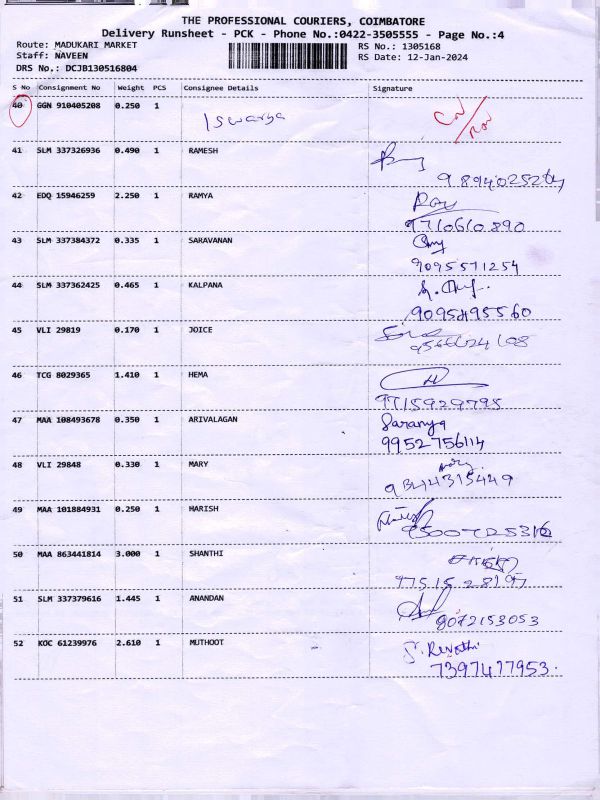 THE PROFESSIONAL COURIERS, COIMBATORE
Delivery Runsheet - PCK - Phone No.:0422-3505555 - Page No.:4
Route: MADUKARI MARKET
Staff: NAVEEN
DRS No.: DCJB130516804
RS No.: 1305168
RS Date: 12-Jan-2024
S No Consignment No Weight PCS Consignee Details Signature
40 GGN 910405208 0.250 1 Iswarya
41 SLM 337326936 0.490 1 RAMESH
42 EDQ 15946259 2.250 1 RAMYA
9710610890
43 SLM 337384372 0.335 1 SARAVANAN
9095571254
44 SLM 337362425 0.465 1 KALPANA
45 VLI 29819 0.170 1 JOICE
46 TCG 8029365 1.410 1 HEMA
9715929795
47 MAA 108493678 0.350 1 ARIVALAGAN Saranya
9952756114
48 VLI 29848 0.330 1 MARY
49 MAA 101884931 0.250 1 HARISH
50 MAA 863441814 3.000 1 SHANTHI
51 SLM 337379616 1.445 1 ANANDAN
8072153053
52 KOC 61239976 2.610 1 MUTHOOT S. Revathi
7397477953